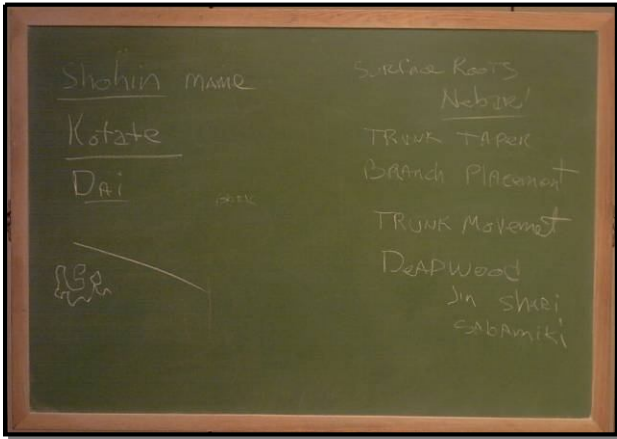 Shohin MAME
Kotate
DAi
Surface Roots
Nebari
TRUNK TAPER
BRANch PlAcement
TRUNK Movement
DeADWood
Jin SHARi
SABAmiki